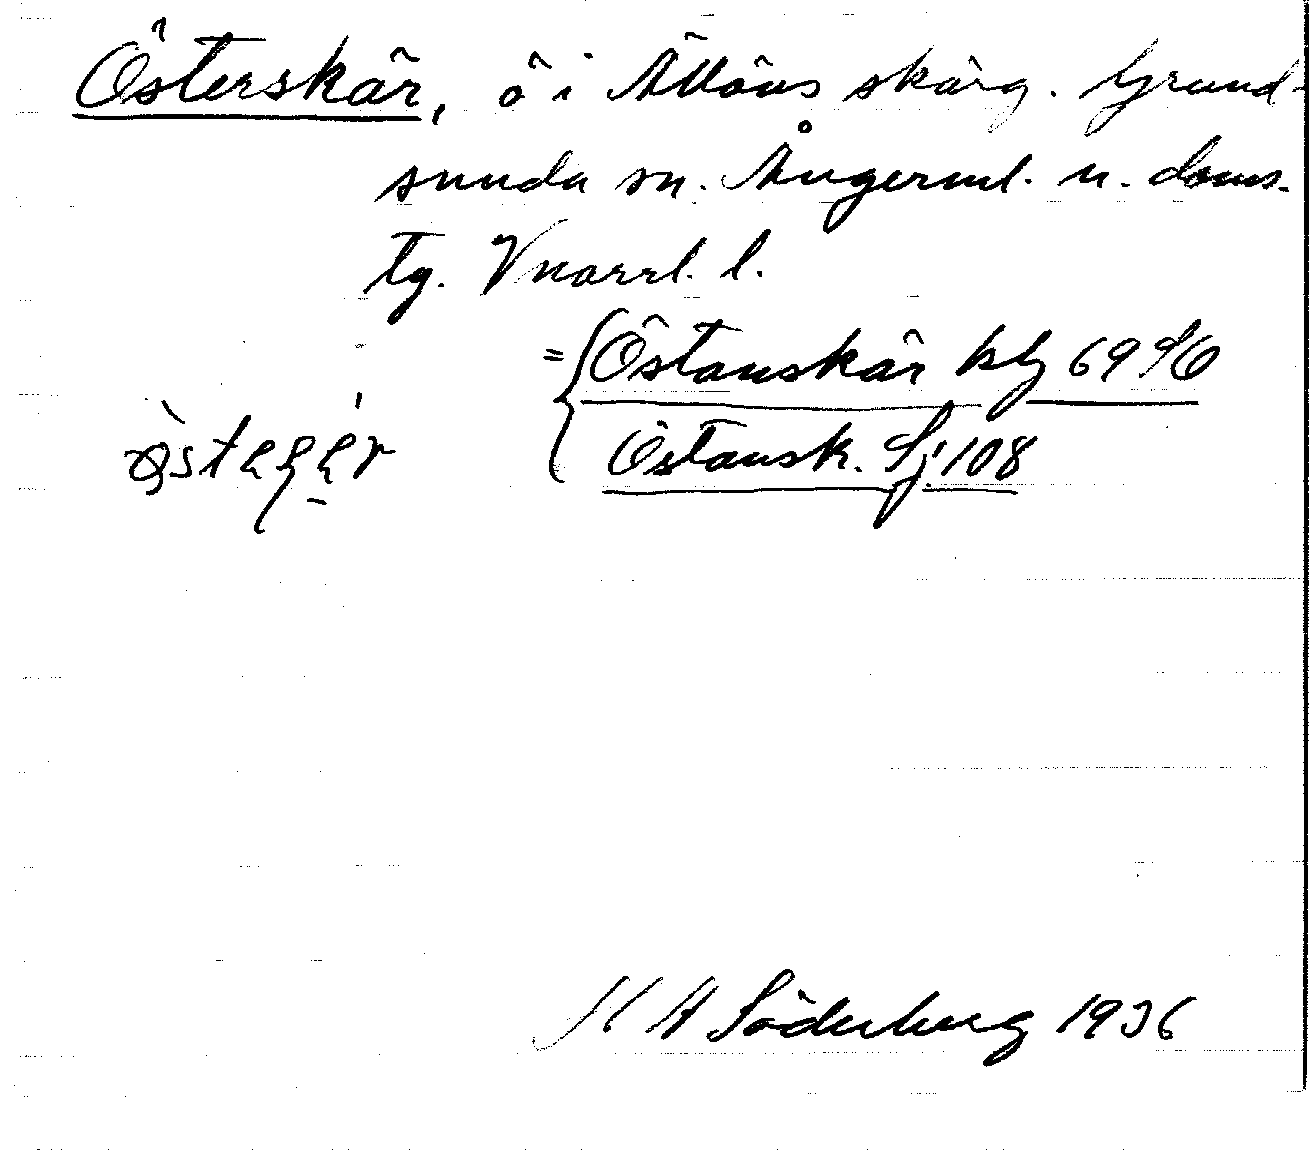 Österskär, ö i Ällöns skärg. Grund-
sunda sn. Ångerml. n. doms.
tg. Vnorrl. l.
= Östanskär kbl 69
Östansk. Sj. 108
M A Söderberg 1936